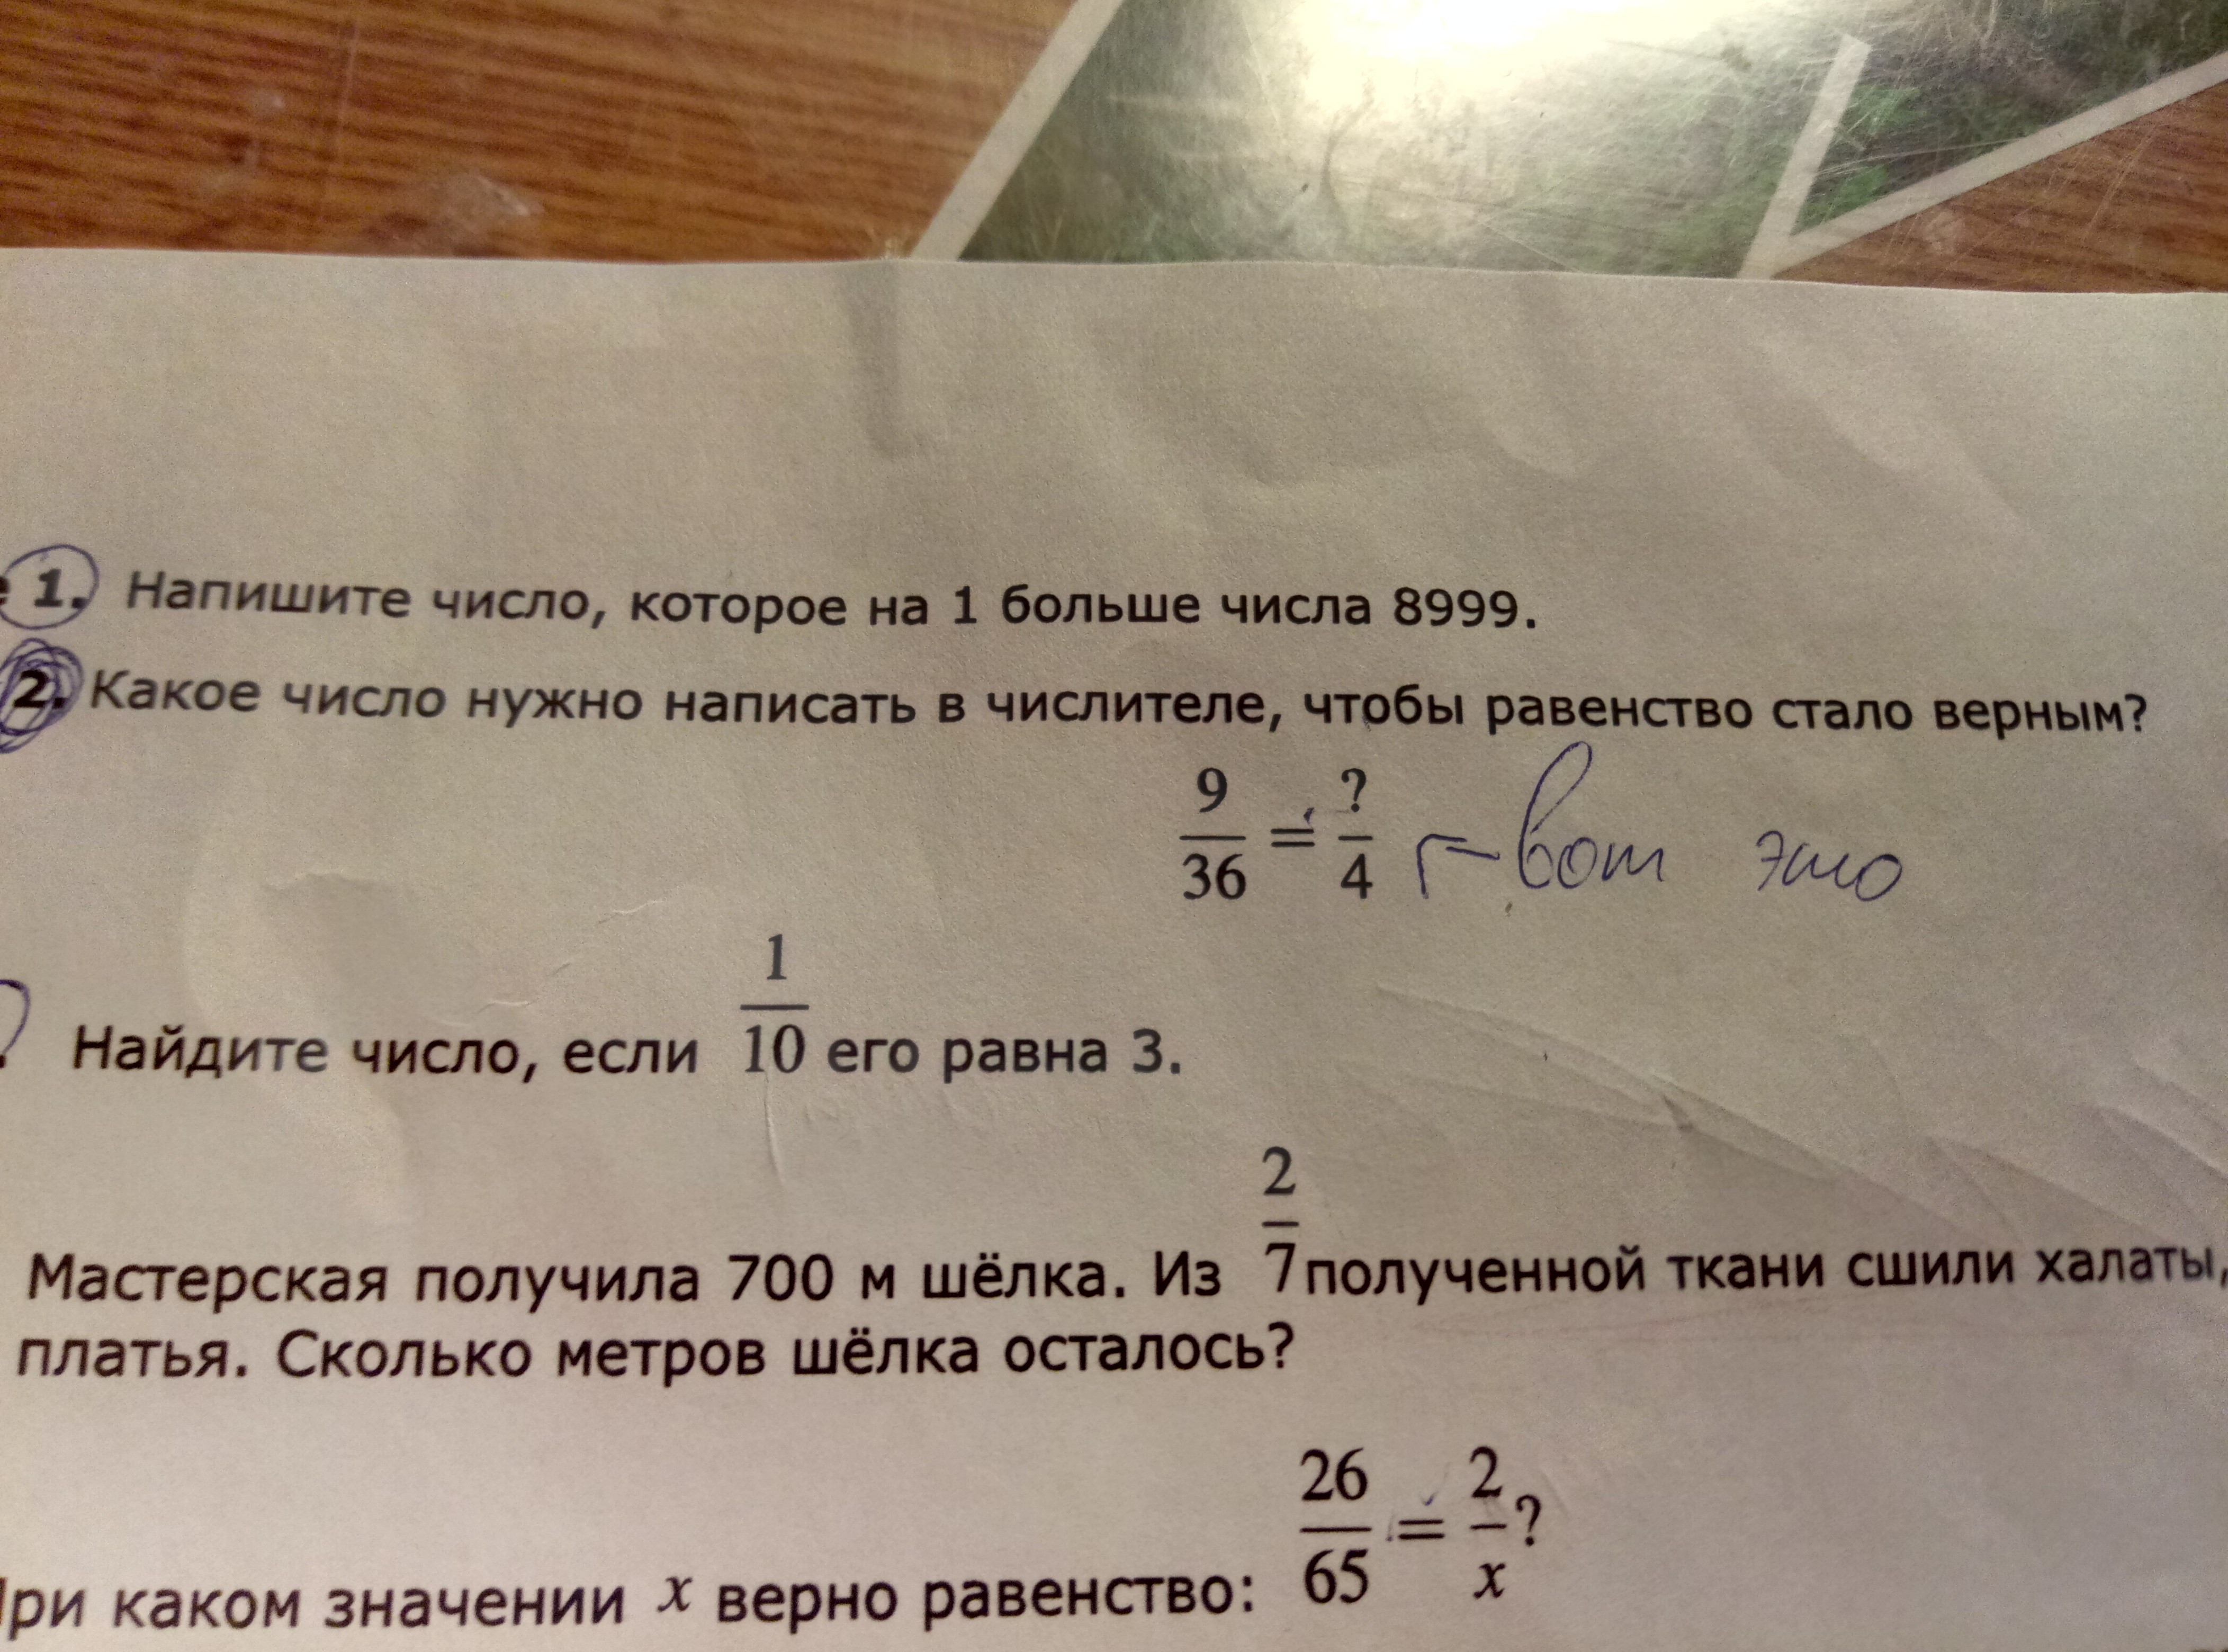 1. Напишите число, которое на 1 больше числа 8999.
2. Какое число нужно написать в числителе, чтобы равенство стало верным?
9/36 = ?/4 вот это
Найдите число, если 1/10 его равна 3.
Мастерская получила 700 м шёлка. Из 2/7 полученной ткани сшили халаты,
платья. Сколько метров шёлка осталось?
ри каком значении x верно равенство: 26/65 = 2/x?